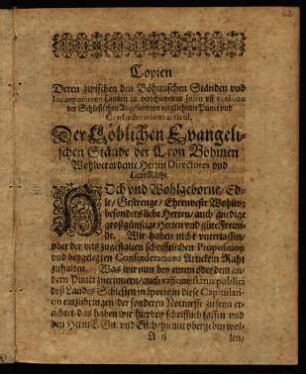 Copien
Deren zwischen den Böhmischen Ständen vnd
Incorporirten Landen in verschienenen Julio vnd
der Schlesischen Abgesandten verglichene Punct vnd
Confoederations articul.
Der Löblichen Evangeli-
schen Stände der Cron Böhmen
Wohlverordente Herrn Directores vnd
HOch vnd Wohlgeborne/ Ed-
le/ Gestrenge/ Ehrnveste Wohlw:
besonders liebe Herren/ auch gnädige
großgünstige Herren vnd gute Freun-
de. Wir haben nicht vnterlassen/
vber der vns zugestalten schrifftlichen Proposition
vnd beygelegten Confoederations Artickeln Raht
zuhalten. Was wir nun bey einem oder dem an-
dern Punct zuerinnern/ auch ratione status publici
deß Landes Schlesien in specie in diese Capitulati-
on einzubringen/ der sonderen Notturfft zu seyn er-
achtet/ das haben wir hierbey schrifftlich fassen vnd
den Herrn E. Gn. vnd vbergeben wol-
A ij
len/